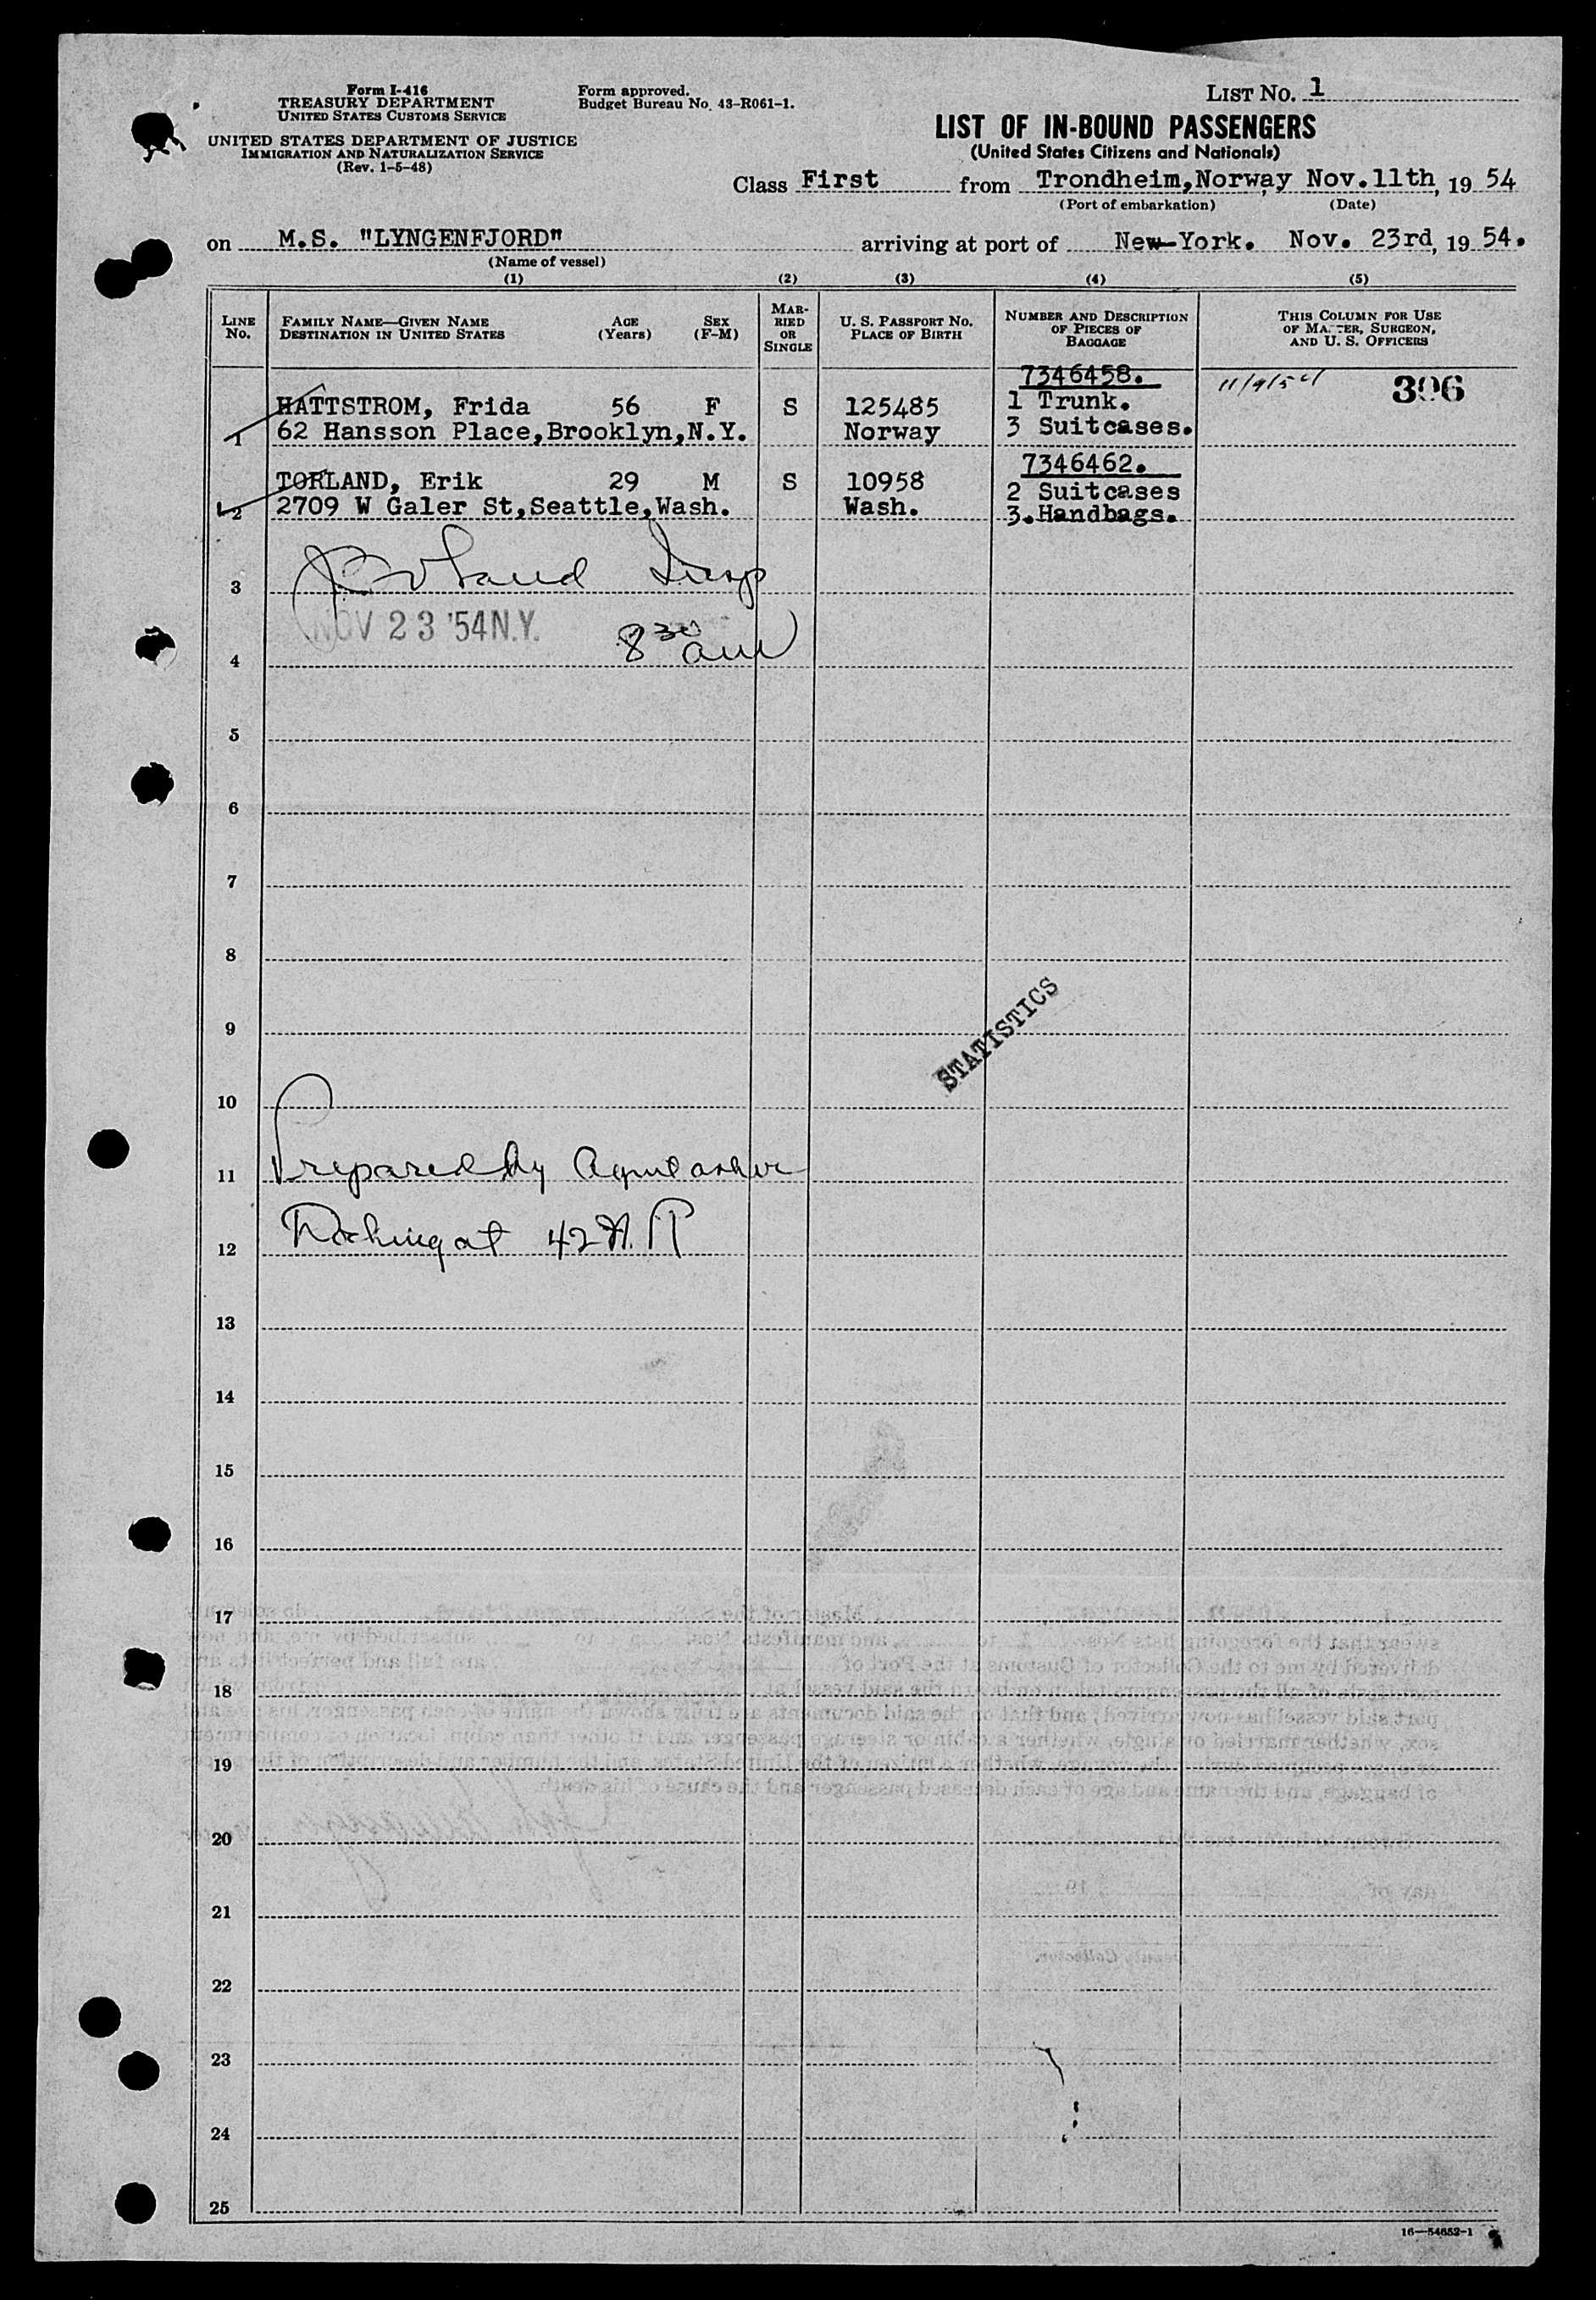 Form I-416
TREASURY DEPARTMENT
UNITED STATES CUSTOMS SERVICE
UNITED STATES DEPARTMENT OF JUSTICE
IMMIGRATION AND NATURALIZATION SERVICE
(Rev. 1-5-48)
Form approved.
Budget Bureau No. 43-R061-1.
LIST NO. 1
LIST OF IN-BOUND PASSENGERS
(United States Citizens and Nationals)
Class First from Trondheim, Norway Nov. 11th, 19 54
(Port of embarkation) (Date)
on M.S. "LYNGENFJORD" arriving at port of New-York. Nov. 23rd, 19 54.
(Name of vessel)
(1) (2) (3) (4) (5)
LINE NO.
FAMILY NAME—GIVEN NAME
DESTINATION IN UNITED STATES
AGE (Years)
SEX (F-M)
MARRIED OR SINGLE
U. S. PASSPORT NO.
PLACE OF BIRTH
NUMBER AND DESCRIPTION OF PIECES OF BAGGAGE
THIS COLUMN FOR USE OF MASTER, SURGEON, AND U. S. OFFICERS
7346458. 11/9/54 396
HATTSTROM, Frida 56 F S 125485 1 Trunk.
1 62 Hansson Place, Brooklyn, N.Y. Norway 3 Suitcases.
7346462.
TORLAND, Erik 29 M S 10958 2 Suitcases
2 2709 W Galer St, Seattle, Wash. Wash. 3. Handbags.
3 Insp
NOV 23 '54 N.Y. 8 30 am
4
5
6
7
8
STATISTICS
9
10
11 Prepared by
12 at 42
13
14
15
16
17
18
19
20
21
22
23
24
25
16—54652-1